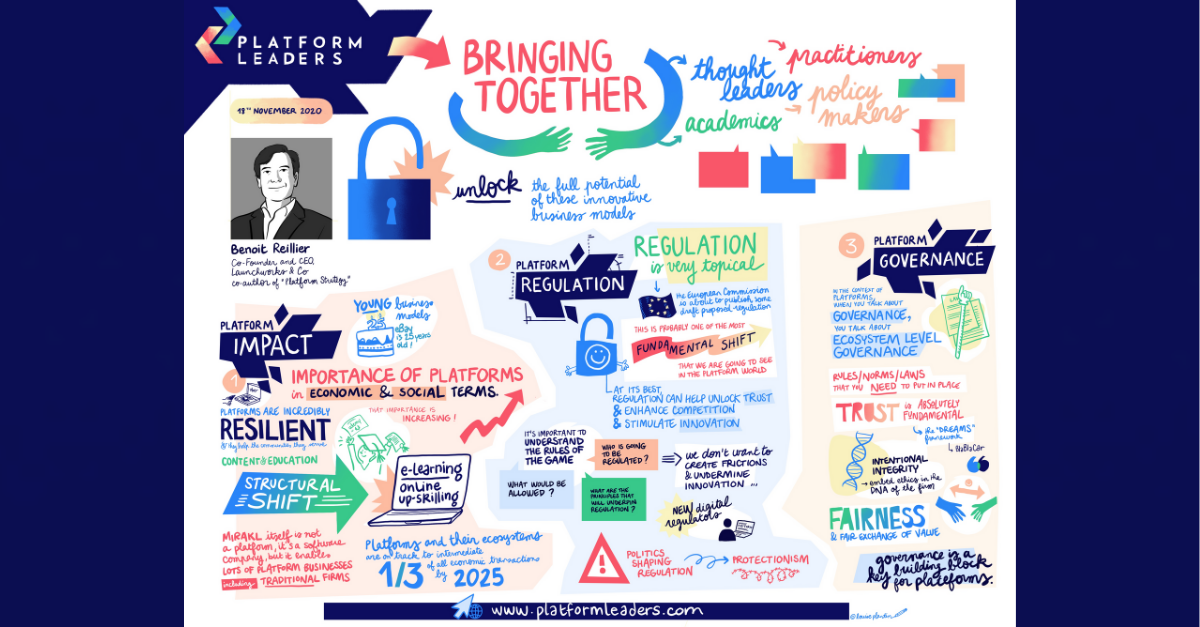 PLATFORM
LEADERS
18TH NOVEMBER 2020
BRINGING
TOGETHER
thought
leaders
practitioners
policy
makers
academics
unlock
the full potential
of these innovative
business models
Benoit Reillier
Co-Founder and CEO,
Launchworks & Co
co-author of "Platform Strategy"
PLATFORM
IMPACT
1
YOUNG business
models
25
eBay
is 25 years
old!
IMPORTANCE OF PLATFORMS
in ECONOMIC & SOCIAL TERMS.
THAT IMPORTANCE IS
INCREASING!
PLATFORMS ARE INCREDIBLY
RESILIENT
& they help the communities they serve
CONTENT & EDUCATION
STRUCTURAL
SHIFT
e-learning
online
up-skilling
MIRAKL itself is not
a platform, it's a software
company, but it enables
LOTS OF PLATFORM BUSINESSES
including TRADITIONAL FIRMS
Platforms and their ecosystems
are on track to intermediate
1/3 of all economic transactions
by 2025
2
PLATFORM
REGULATION
REGULATION
is very topical
the European Commission
is about to publish some
draft proposed regulation
THIS IS PROBABLY ONE OF THE MOST
FUNDAMENTAL SHIFT
THAT WE ARE GOING TO SEE
IN THE PLATFORM WORLD
AT ITS BEST,
REGULATION CAN HELP UNLOCK TRUST
& ENHANCE COMPETITION
& STIMULATE INNOVATION
IT'S IMPORTANT TO
UNDERSTAND
THE RULES OF
THE GAME
WHO IS GOING
TO BE
REGULATED?
WHAT WOULD BE
ALLOWED?
WHAT ARE THE
PRINCIPLES THAT
WILL UNDERPIN
REGULATION?
we don't want to
CREATE FRICTIONS
& UNDERMINE
INNOVATION ...
NEW digital
regulators
POLITICS
SHAPING
REGULATION
PROTECTIONISM
3
PLATFORM
GOVERNANCE
IN THE CONTEXT OF
PLATFORMS,
WHEN YOU TALK ABOUT
GOVERNANCE,
YOU TALK ABOUT
ECOSYSTEM LEVEL
GOVERNANCE
RULES/NORMS/LAWS
THAT YOU NEED TO PUT IN PLACE
TRUST is ABSOLUTELY
FUNDAMENTAL
the "DREAMS"
framework
BlaBlaCar
INTENTIONAL
INTEGRITY
embed ethics in the
DNA of the firm
FAIRNESS
& FAIR EXCHANGE OF VALUE
governance is a
key building block
for platforms.
www.platformleaders.com